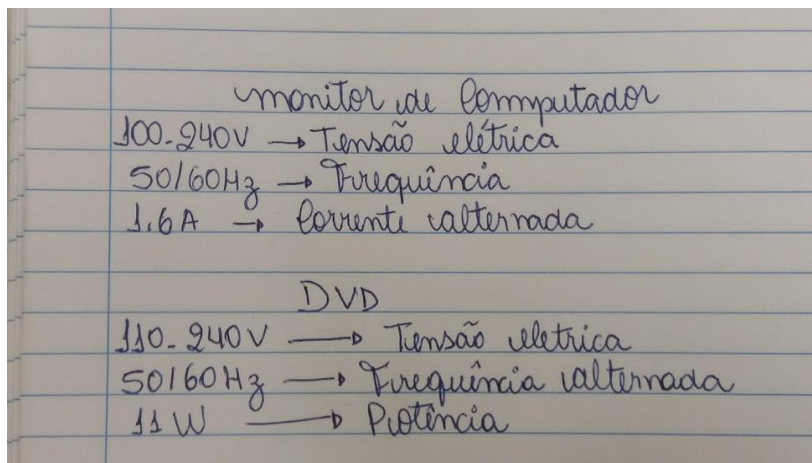 monitor de Computador
100-240V → Tensão elétrica
50/60Hz → Frequência
1.6A → Corrente alternada
DVD
110-240V → Tensão eletrica
50/60Hz → Frequência alternada
11 W → Potência